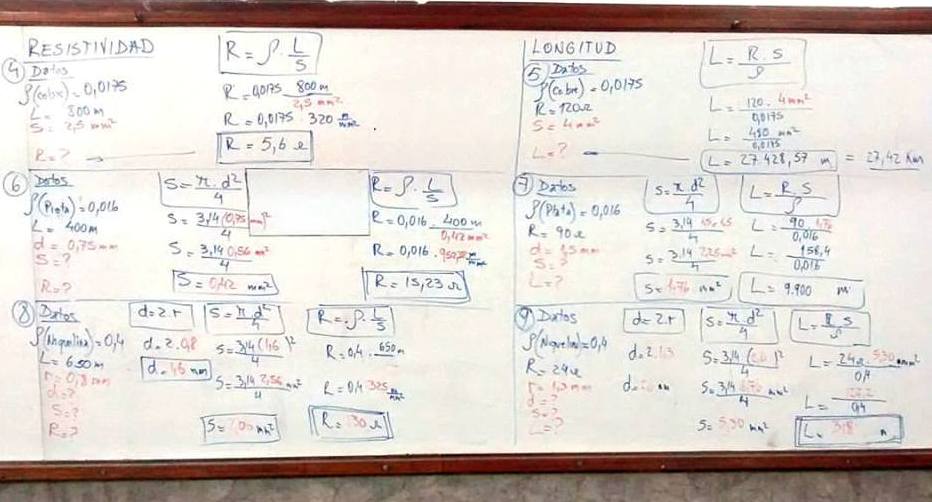 RESISTIVIDAD
R = ρ · L/S
④ Datos
ρ(Cobre) = 0,0175
L = 800 m
S = 2,5 mm²
R = ?
R = 0,0175 · 800 m / 2,5 mm²
R = 0,0175 · 320 m/mm²
R = 5,6 Ω
LONGITUD
L = R. S / ρ
⑤ Datos
ρ(Cobre) = 0,0175
R = 120 Ω
S = 4 mm²
L = ?
L = 120 · 4 mm² / 0,0175
L = 480 mm² / 0,0175
L = 27.428,57 m = 27,42 Km
⑥ Datos
ρ(Plata) = 0,016
L = 400 m
d = 0,75 mm
S = ?
R = ?
S = π. d² / 4
S = 3,14 (0,75 mm)² / 4
S = 3,14 0,56 m² / 4
S = 0,42 mm²
R = ρ · L/S
R = 0,016 · 400 m / 0,42 mm²
R = 0,016 ·
R = 15,23 Ω
⑦ Datos
ρ(Plata) = 0,016
R = 90 Ω
d = 1,5 mm
S = ?
L = ?
S = π. d² / 4
S = 3,14 1,5 · 1,5 / 4
S = 3,14 2,25 mm² / 4
S = 1,76 mm²
L = R. S / ρ
L = 90 1,76 / 0,016
L = 158,4 / 0,016
L = 9.900 m
⑧ Datos
ρ(Niquelina) = 0,4
L = 650 m
r = 0,8 mm
d = ?
S = ?
R = ?
d = 2. r
d = 2. 0,8
d = 1,6 mm
S = π. d² / 4
S = 3,14 (1,6)² / 4
S = 3,14 2,56 mm² / 4
S = 2,00 mm²
R = ρ · L/S
R = 0,4 · 650 m
R = 0,4 325 m/mm²
R = 130 Ω
⑨ Datos
ρ(Niquelina) = 0,4
R = 24 Ω
r = 1,3 mm
d = ?
S = ?
L = ?
d = 2. r
d = 2. 1,3
S = π. d² / 4
S = 3,14 (2,6)² / 4
S = 3,14 6,76 mm² / 4
S = 5,30 mm²
L = R. S / ρ
L = 24 Ω 5,30 mm² / 0,4
L = 127,2 / 0,4
L = 318 m